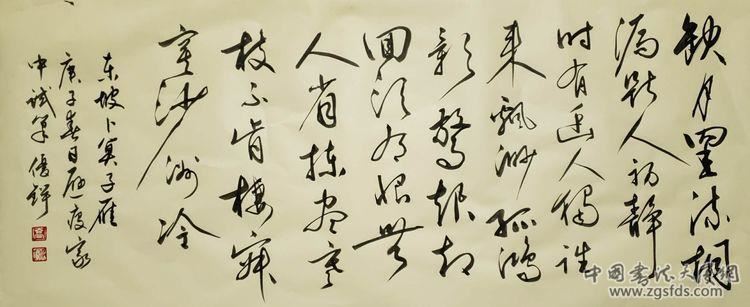 缺月罣疏桐
漏断人初静
时有幽人獨往
来飄渺孤鴻
影驚起却
回头有恨無
人省拣尽寒
枝不肯棲寂
寞沙洲冷
东坡卜算子雁
庚子春日避疫家
中试笔
中国书法大师网
www.zgsfds.com